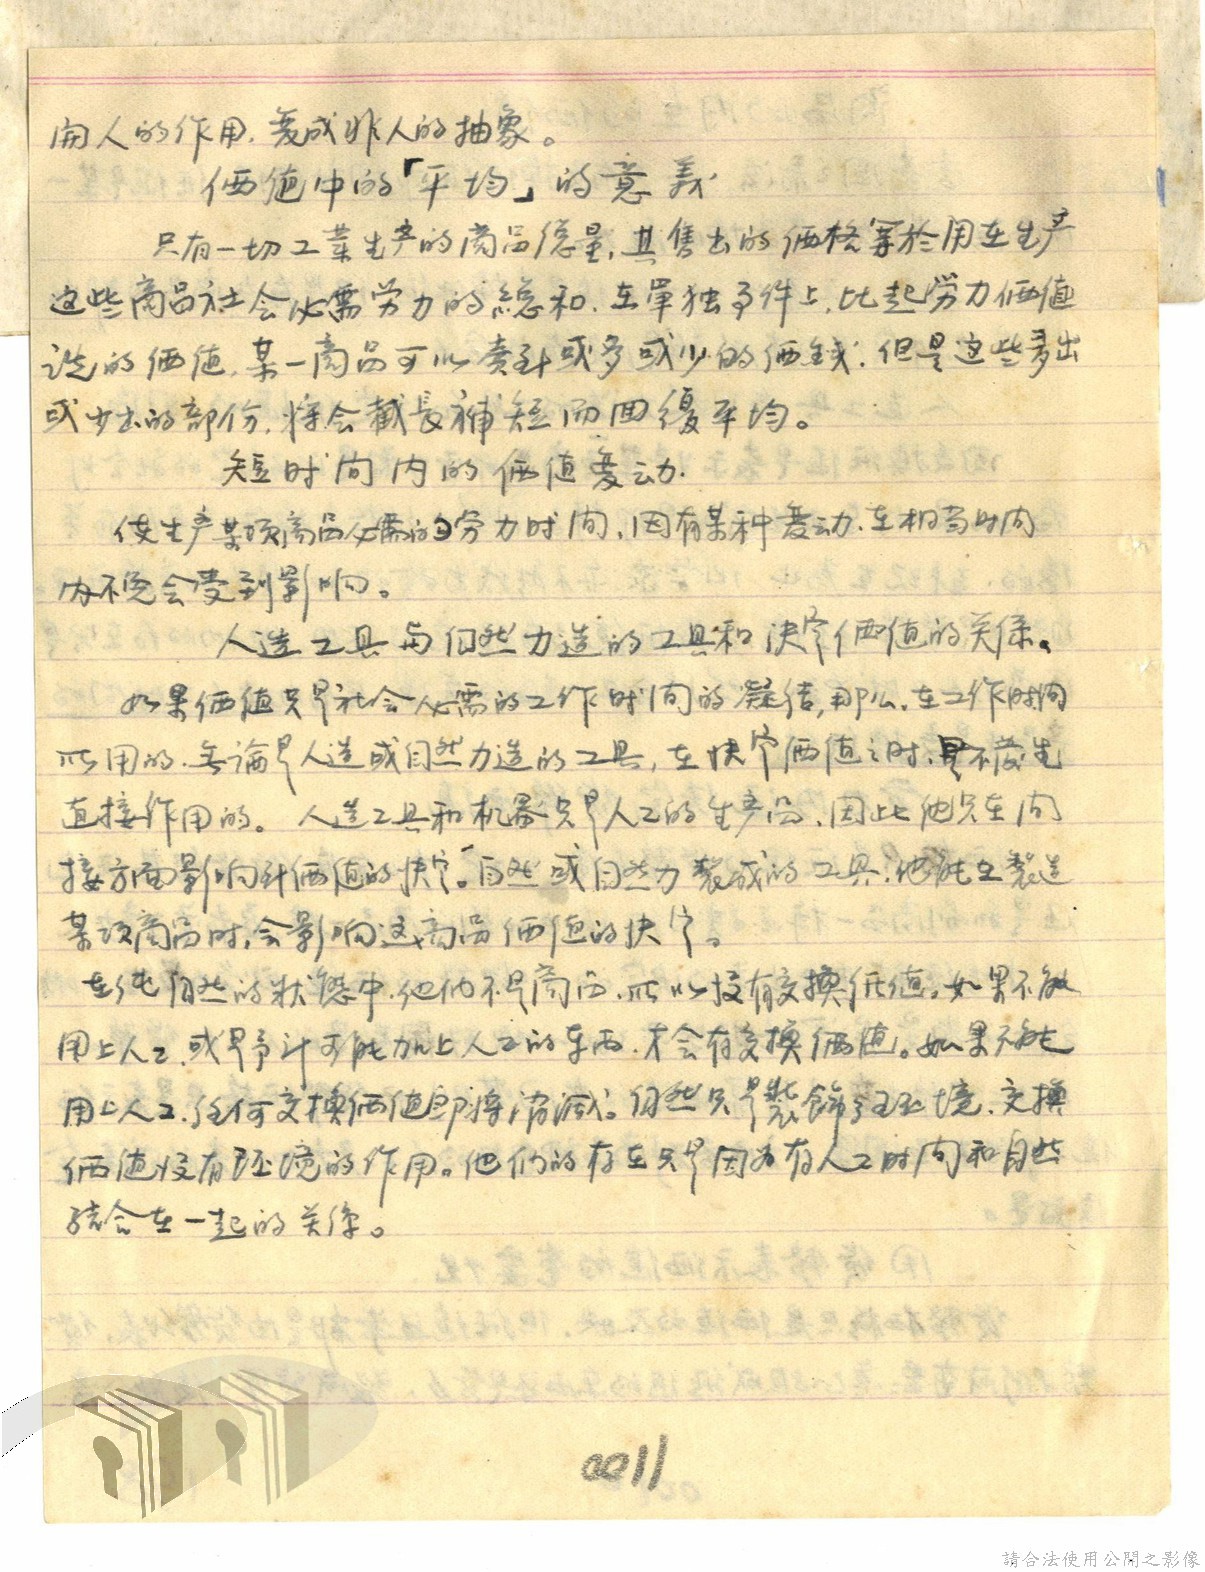 開人的作用，变成非人的抽象。
価值中的「平均」的意義
只有一切工業生产的商品總量，其售出的価格等於用在生产
这些商品社会必需労力的總和，在單独事件上，比起労力価值
説的価值，某一商品可以賣到或多或少的価錢，但是这些多出
或少出的部份，将会截長補短而回復平均。
短时间内的価值变动
使生产某项商品必需的劳力时间，因有某种变动，在相当时间
内不免会受到影响。
人造工具与自然力造的工具和决定価值的关係。
如果価值只是社会必需的工作时间的凝结，那么，在工作时间
所用的，无論是人造或自然力造的工具，在快定価值之时，是不发生
直接作用的。人造工具和机器只是人工的生产品，因此他只在间
接方面影响到価值的快定。自然或自然力製成的工具，他能在製造
某项商品时，会影响这商品価值的快定。
在纯自然的状態中，他们不是商品，所以没有交換価值。如果不能
用上人工，或是予计可能加上人工的东西，才会有交換価值。如果不能
用上人工，任何交換価值即将消滅。自然只是裝飾环境，交換
価值没有环境的作用。他们的存在只是因为有人工时间和自然
结合在一起的关係。
0011
請合法使用公開之影像